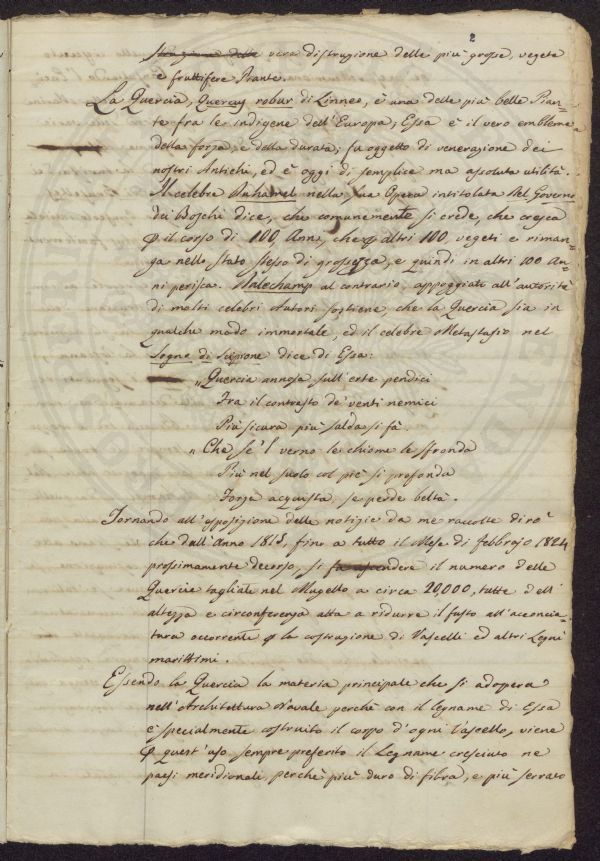 2
struzione della vera distruzione delle più grosse, vegete
e fruttifere Piante.
La Quercia, Quercus robur di Linneo, è una delle più belle Pian-
te fra le indigene dell'Europa; Essa è il vero emblema
della forza, e della durata; fu oggetto di venerazione dei
nostri Antichi, ed è oggi di semplice ma assoluta utilità.
Il celebre Duhamel nella sua Opera intitolata Del Governo
dei Boschi dice, che comunemente si crede, che cresca
p il corso di 100, Anni, che p altri 100, vegeti e riman-
ga nello stato stesso di grossezza, e quindi in altri 100 An-
ni perisca. Dalechamp al contrario, appoggiato all'autorità
di molti celebri Autori sostiene, che la Quercia sia in
qualche modo immortale, ed il celebre Metastasio nel
Sogno di Scipione dice di Essa:
„Quercia annosa sull'erte pendici
Fra il contrasto de' venti nemici
Più sicura più salda si fà.
„Che se 'l verno le chiome le sfronda
Più nel suolo col piè si profonda
Forza acquista, se perde beltà.
Tornando all'esposizione delle notizie da me raccolte dirò
che dall'Anno 1815, fino a tutto il Mese di febbrajo 1824
prossimamente decorso, si fa ascendere il numero delle
Quercie tagliate nel Mugello a circa 20,000, tutte dell'
altezza e circonferenza atta a ridurre il fusto all'acconcia-
tura occorrente p la costruzione di Vascelli ed altri Legni
marittimi.
Essendo la Quercia la materia principale che si adopera
nell'Architettura Navale perchè con il legname di Essa
è specialmente costruito il corpo d'ogni Vascello, viene
p quest'uso sempre preferito il Legname cresciuto ne
paesi meridionali, perchè più duro di fibra, e più serrato